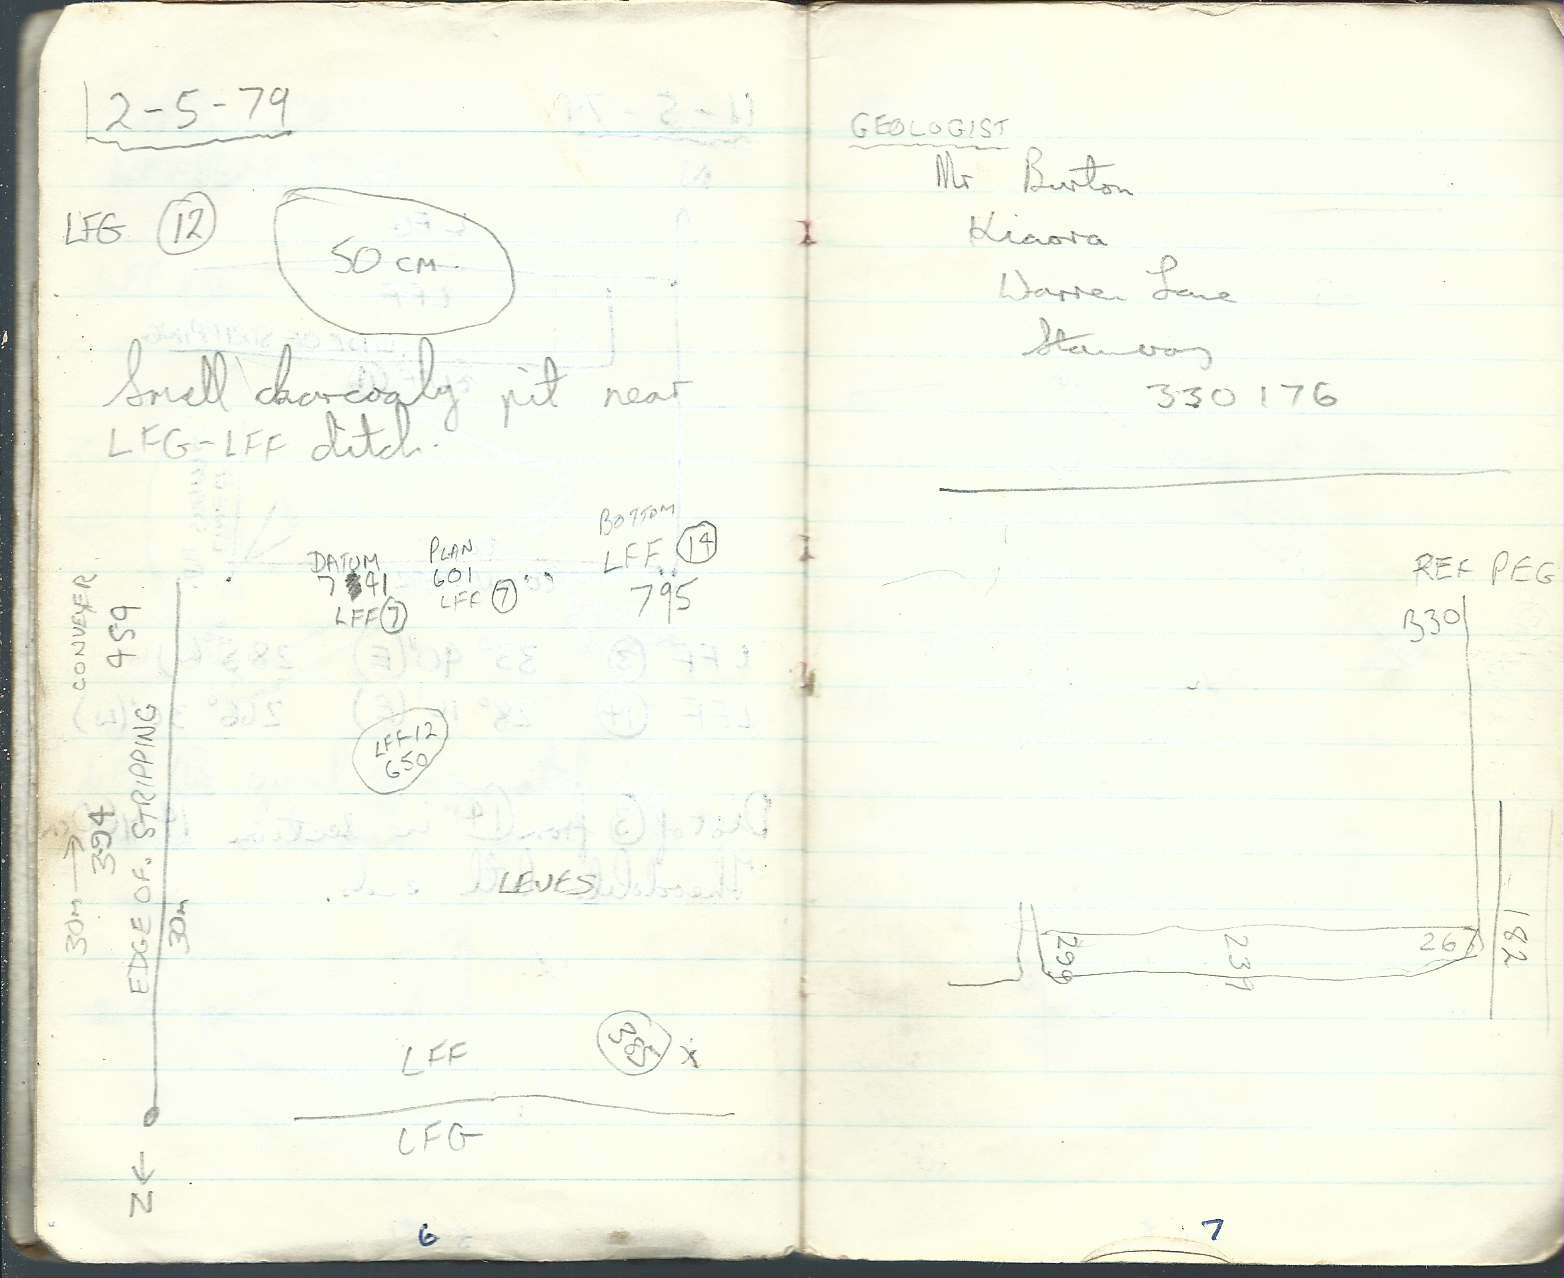 12-5-79
LFG 12
50 CM
Small charcoaly pit near
LFG-LFF ditch.
DATUM
7 41
LFF 7
PLAN
601
LFF 7
BOTTOM
LFF 14
795
CONVEYER
459
EDGE OF. STRIPPING
394
30m →
30m
LFF12
650
LEVES
LFF
385 x
LFG
N ←
6
GEOLOGIST
Mr Burton
Kiaora
Warren Lane
Stanway
330176
REF PEG
330
299
239
267
182
7